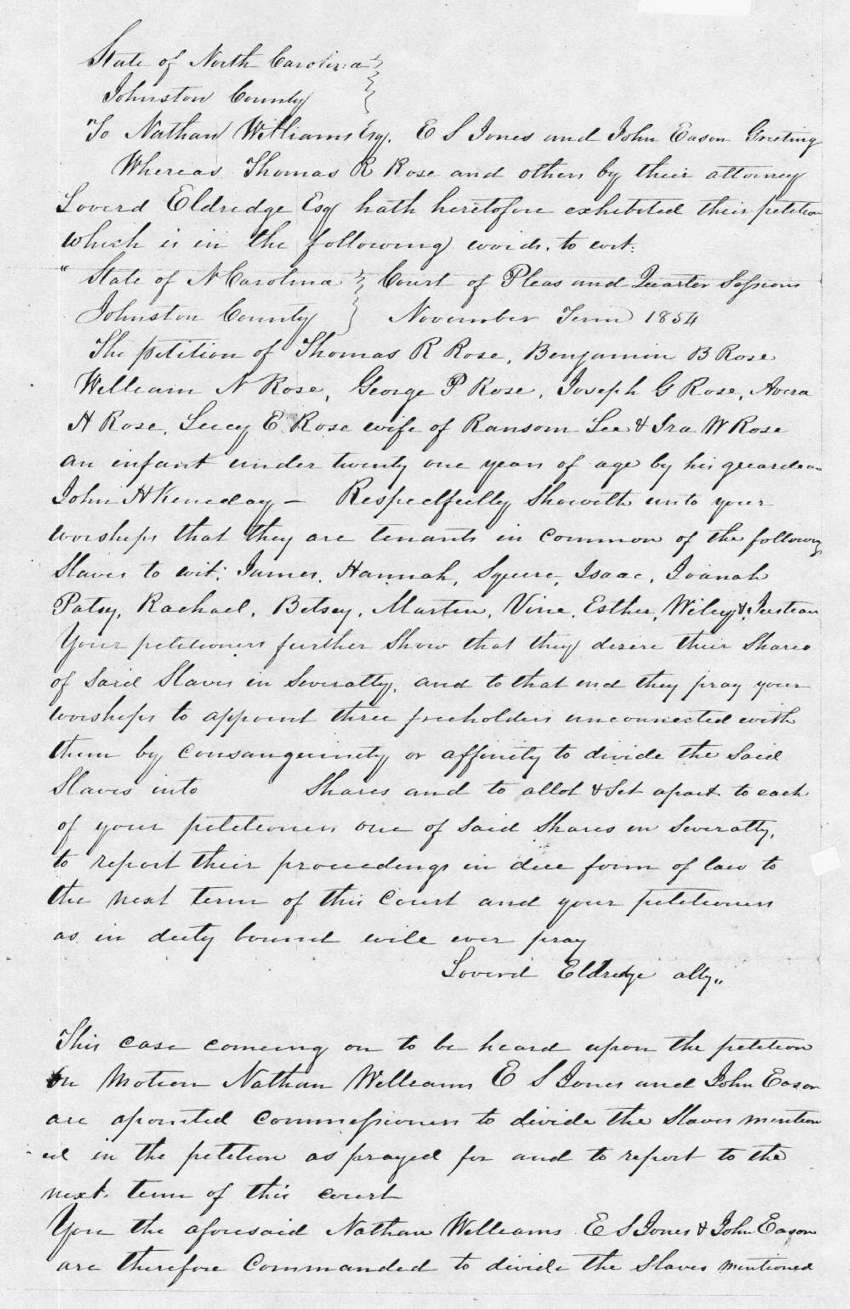 State of North Carolina
Johnston County
To Nathan Williams Esq. E S Jones and John Eason Greeting
Whereas Thomas R Rose and others by their attorney
Loverd Eldredge Esq hath heretofore exhibited their petition
which is in the following words, to wit:
"State of N Carolina Court of Pleas and Quarter Sessions
Johnston County November Term 1854
The petition of Thomas R Rose, Benjamin B Rose
William N Rose, George P Rose, Joseph G Rose, Avera
H Rose, Lucy E Rose wife of Ransom Lee & Ira W Rose
an infant under twenty one years of age by his guardean
John H Keneday – Respectfully Showeth unto your
worships that they are tenants in common of the following
Slaves to wit; James, Hannah, Squire, Isaac, Joanah
Patsy, Rachael, Betsey, Martin, Vine, Esther, Wiley &
Your petitioners further Show that they desire their Shares
of said Slaves in Severalty, and to that end they pray your
worships to appoint three freeholders unconnected with
them by consanguinity or affinity to divide the Said
Slaves into Shares and to allot & Set apart to each
of your petitioners one of said Shares in Severalty,
to report their proceedings in due form of law to
the next term of this Court and your petitioners
as in duty bound will ever pray
Loverd Eldredge atty"
This case comeing on to be heard upon the petition
On Motion Nathan Williams E S Jones and John Eason
are apointed commissioners to divide the Slaves mention
ed in the petition as prayed for and to report to the
next term of this court
You the aforesaid Nathan Williams E S Jones & John Eason
are therefore Commanded to divide the Slaves mentioned